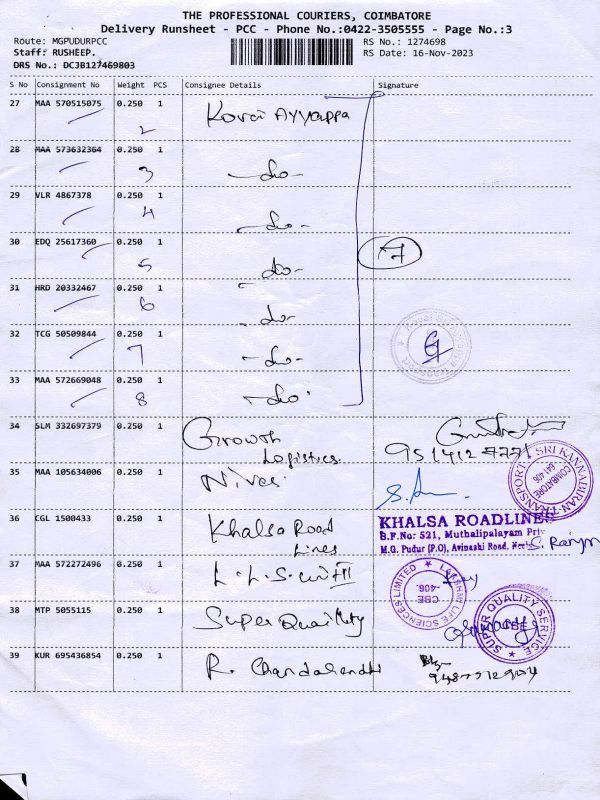 THE PROFESSIONAL COURIERS, COIMBATORE
Delivery Runsheet - PCC - Phone No.:0422-3505555 - Page No.:3
Route: MGPUDURPCC
Staff: RUSHEEP.
DRS No.: DCJB127469803
RS No.: 1274698
RS Date: 16-Nov-2023
S No Consignment No Weight PCS Consignee Details Signature
27 MAA 570515075 0.250 1 Kovai Ayyappa
2
28 MAA 573632364 0.250 1 -do-
3
29 VLR 4867378 0.250 1 -do-
4
30 EDQ 25617360 0.250 1 -do-
5
7
31 HRD 20332467 0.250 1 -do-
6
32 TCG 50509844 0.250 1 -do-
7
33 MAA 572669048 0.250 1 -do-
8
34 SLM 332697379 0.250 1 Growth
Logistics.
SRI KANNABIRAN TRANSPORT
COIMBATORE
641 406
35 MAA 105634006 0.250 1 Nives.
36 CGL 1500433 0.250 1 Khalsa Road
Lines
KHALSA ROADLINES
B.F.No: 521, Muthalipalayam Priv
M.G. Pudur (P.O), Avinashi Road,
37 MAA 572272496 0.250 1 L.L.S unit III
LAKSHMI LIFE SCIENCES LIMITED
CBE
-406.
38 MTP 5055115 0.250 1 Super Quality
SUPER QUALITY SERVICE
CBE
39 KUR 695436854 0.250 1